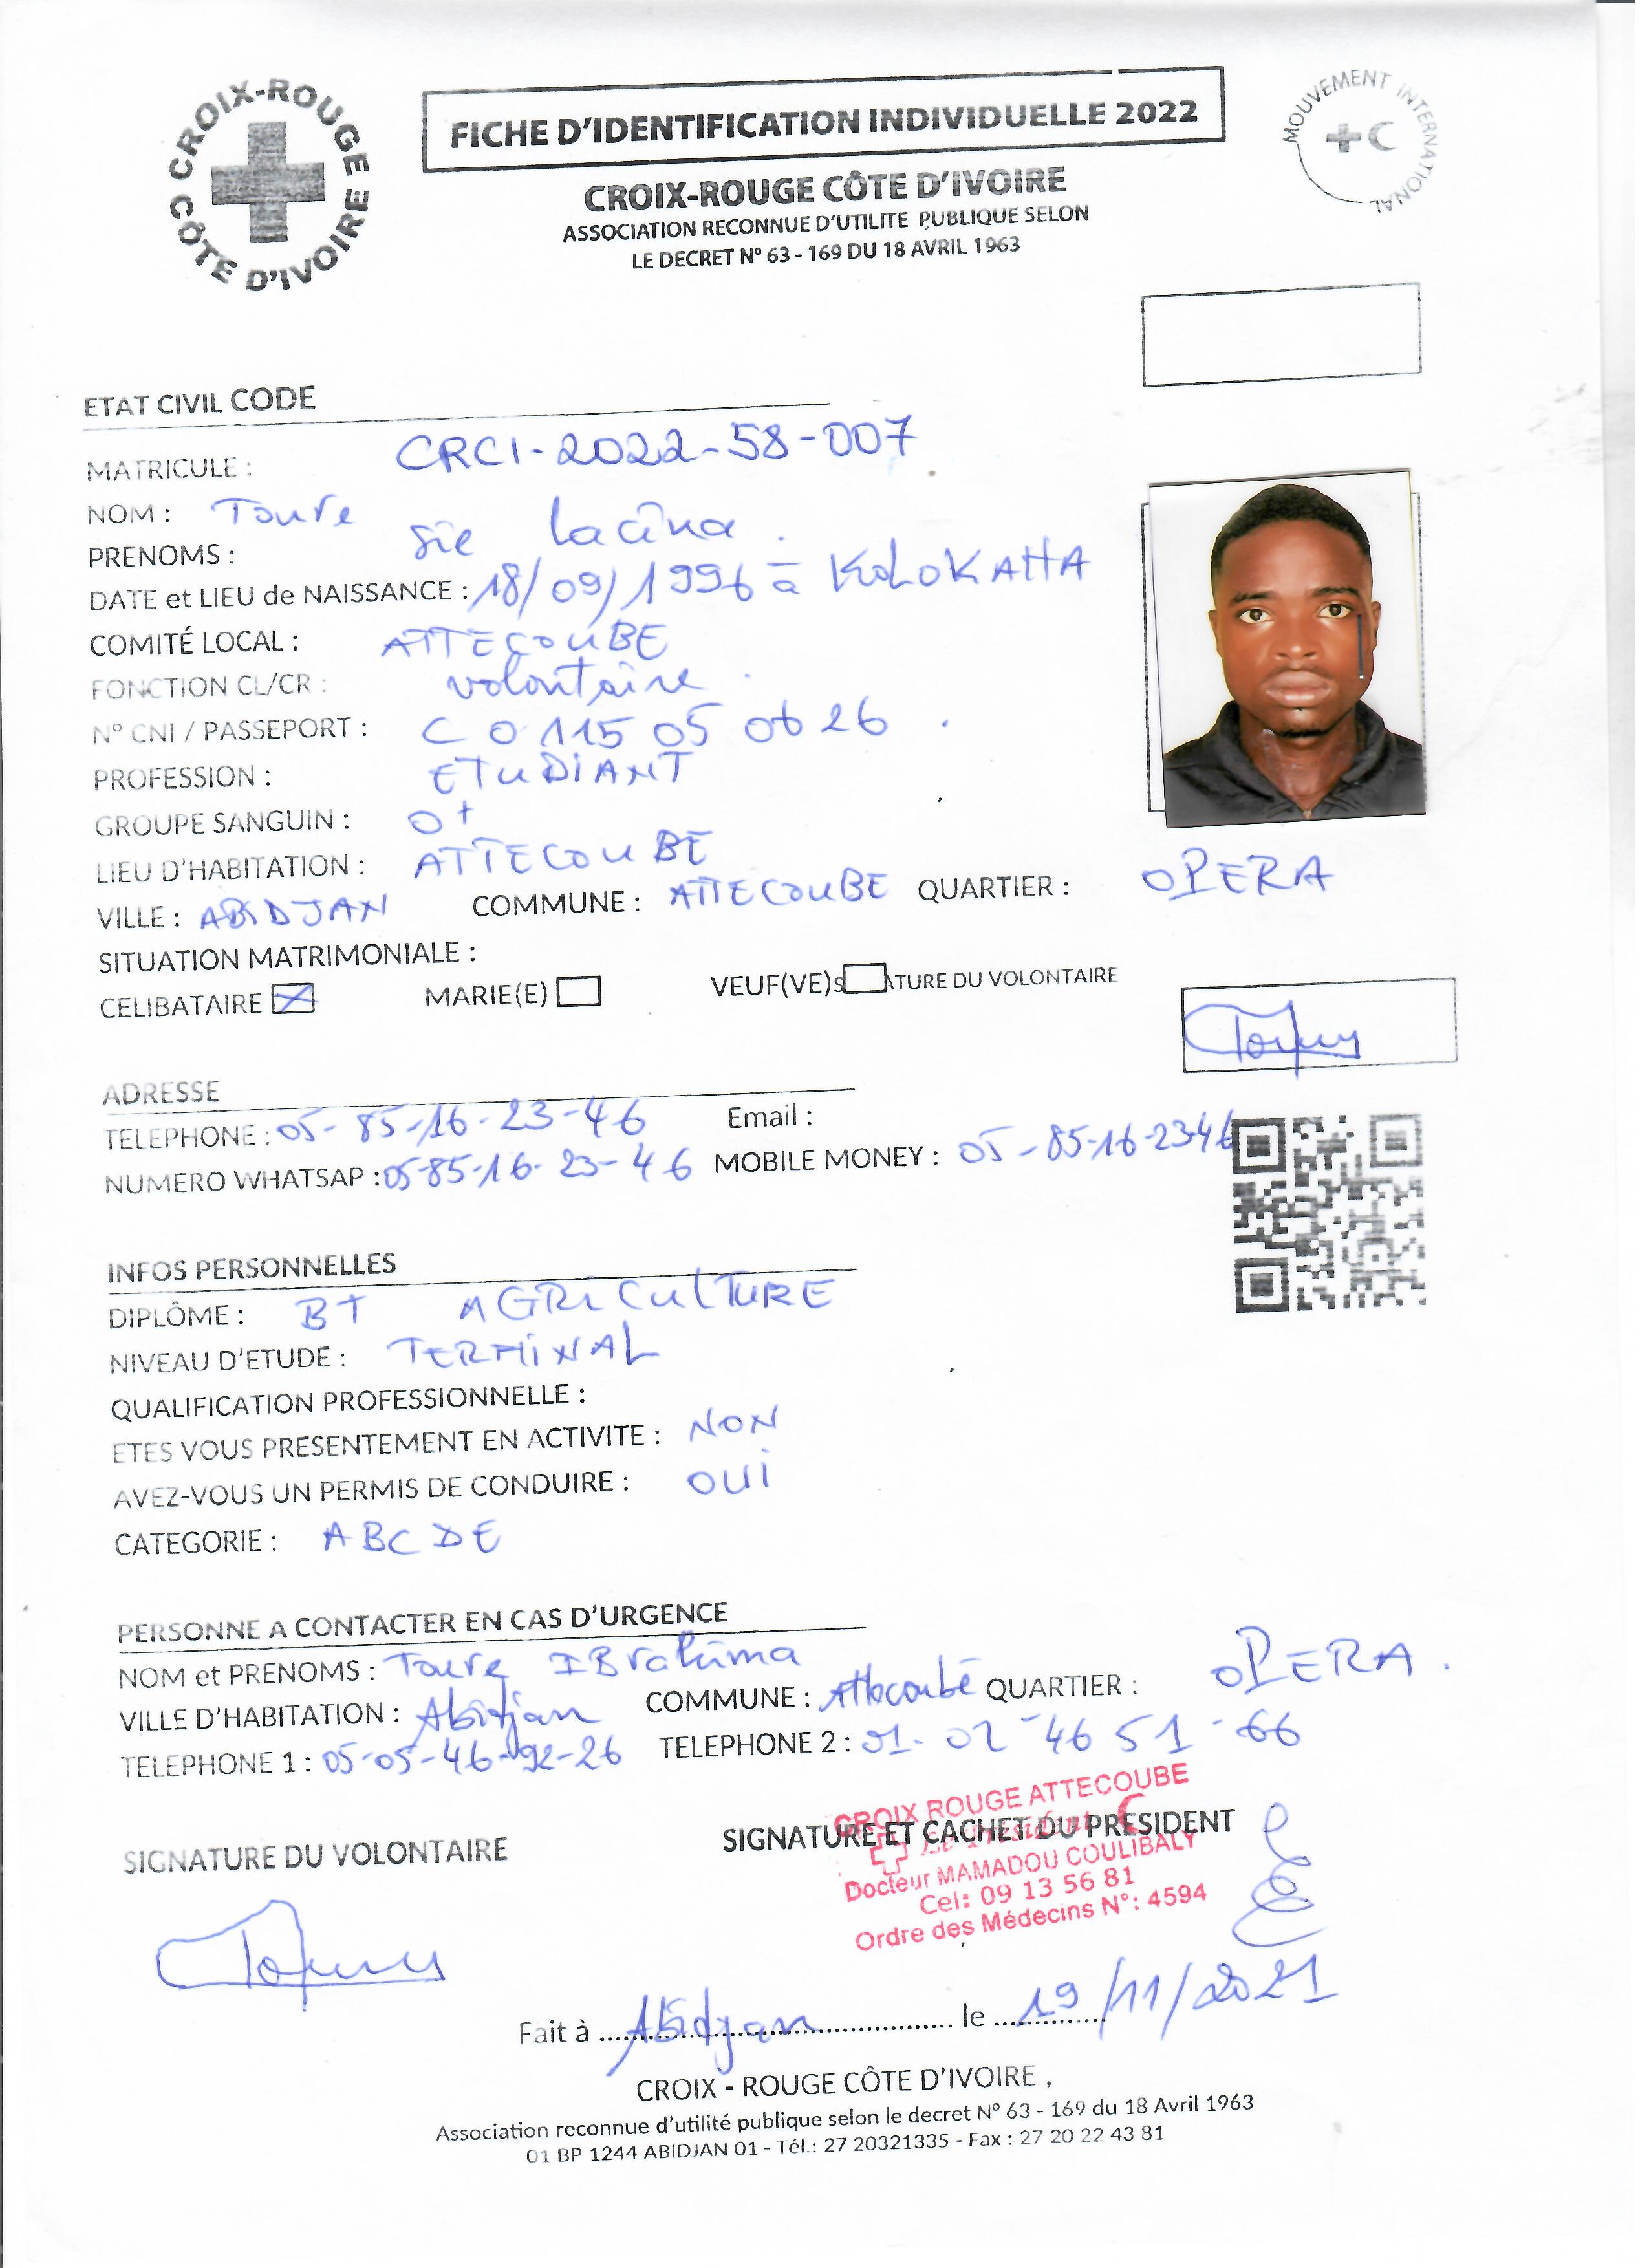 CROIX-ROUGE CÔTE D'IVOIRE
FICHE D'IDENTIFICATION INDIVIDUELLE 2022
MOUVEMENT INTERNATIONAL
CROIX-ROUGE CÔTE D'IVOIRE
ASSOCIATION RECONNUE D'UTILITE PUBLIQUE SELON
LE DECRET N° 63 - 169 DU 18 AVRIL 1963
ETAT CIVIL CODE
MATRICULE : CRCI-2022-58-007
NOM : Toure
PRENOMS : Sie lacina.
DATE et LIEU de NAISSANCE : 18/09/1996 à KOLOKAHA
COMITÉ LOCAL : ATTECOUBE
FONCTION CL/CR : volontaire.
N° CNI / PASSEPORT : C 0 115 05 06 26.
PROFESSION : ETUDIANT
GROUPE SANGUIN : O+
LIEU D'HABITATION : ATTECOUBE
VILLE : ABIDJAN COMMUNE : ATTECOUBE QUARTIER : OPERA
SITUATION MATRIMONIALE :
CELIBATAIRE MARIE(E) VEUF(VE) S ATURE DU VOLONTAIRE
ADRESSE
TELEPHONE : 05-85-16-23-46 Email :
NUMERO WHATSAP : 05-85-16-23-46 MOBILE MONEY : 05-85-16-2346
INFOS PERSONNELLES
DIPLÔME : BT AGRICULTURE
NIVEAU D'ETUDE : TERMINAL
QUALIFICATION PROFESSIONNELLE :
ETES VOUS PRESENTEMENT EN ACTIVITE : NON
AVEZ-VOUS UN PERMIS DE CONDUIRE : OUI
CATEGORIE : ABCDE
PERSONNE A CONTACTER EN CAS D'URGENCE
NOM et PRENOMS : Toure IBrahima
VILLE D'HABITATION : Abidjan COMMUNE : Attecoubé QUARTIER : OPERA.
TELEPHONE 1 : 05-05-46-92-26 TELEPHONE 2 : 01-02-46 51-66
SIGNATURE DU VOLONTAIRE SIGNATURE ET CACHET DU PRESIDENT
CROIX ROUGE ATTECOUBE
Le Président
Docteur MAMADOU COULIBALY
Cel: 09 13 56 81
Ordre des Médecins N°: 4594
Fait à Abidjan le 19/11/2021
CROIX - ROUGE CÔTE D'IVOIRE ,
Association reconnue d'utilité publique selon le decret N° 63 - 169 du 18 Avril 1963
01 BP 1244 ABIDJAN 01 - Tél.: 27 20321335 - Fax : 27 20 22 43 81